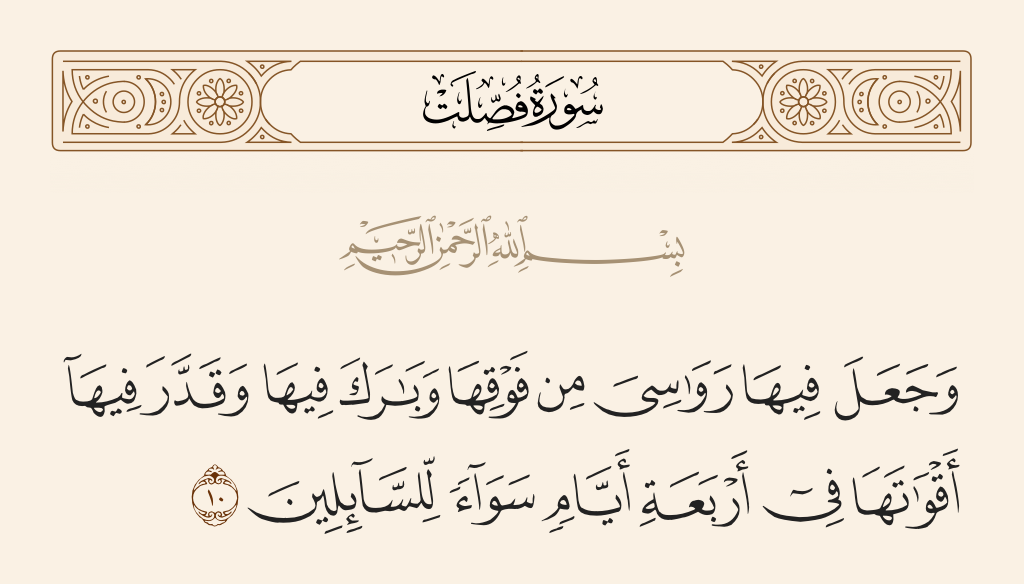 سُورَةُ فُصِّلَتْ
بِسْمِ ٱللَّهِ ٱلرَّحْمَٰنِ ٱلرَّحِيمِ
وَجَعَلَ فِيهَا رَوَٰسِىَ مِن فَوْقِهَا وَبَٰرَكَ فِيهَا وَقَدَّرَ فِيهَآ
أَقْوَٰتَهَا فِىٓ أَرْبَعَةِ أَيَّامٍ سَوَآءً لِّلسَّآئِلِينَ ١٠